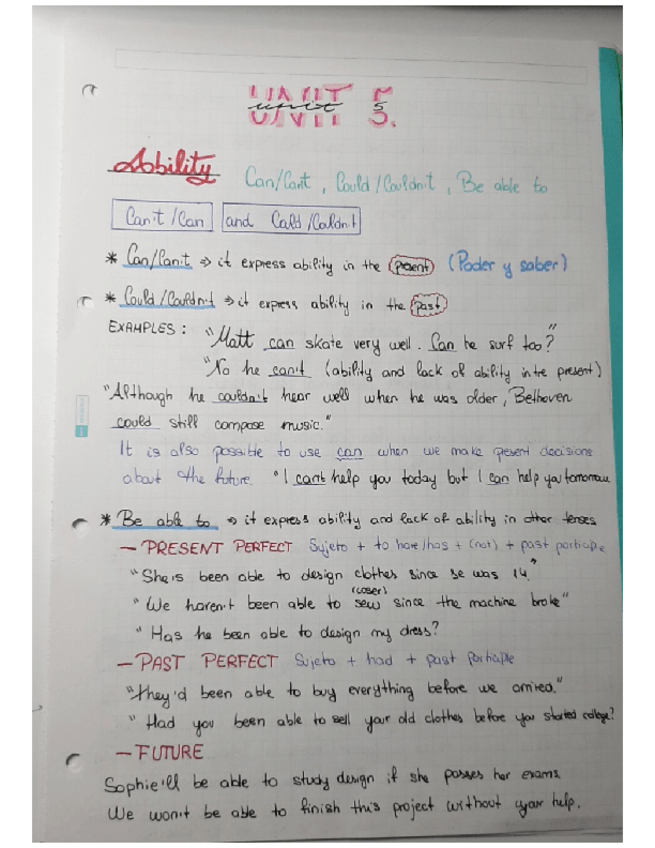 UNIT 5.
unit 5
Ability Can/Can't, Could/Couldn't, Be able to
Can't/Can and Could/Couldn't
* Can/Can't ⇒ it express ability in the present (Poder y saber)
* Could/Couldn't ⇒ it express ability in the past
EXAMPLES: "Matt can skate very well. Can he surf too?"
"No he can't (ability and lack of ability in the present)
"Although he couldn't hear well when he was older, Bethoven
could still compose music."
It is also possible to use can when we make present decisions
about the future. "I can't help you today but I can help you tomorrow
* Be able to ⇒ it express ability and lack of ability in other tenses
– PRESENT PERFECT Sujeto + to have/has + (not) + past participle
"She's been able to design clothes since se was 14."
(coser)
"We haven't been able to sew since the machine broke"
"Has he been able to design my dress?
– PAST PERFECT Sujeto + had + past participle
"they'd been able to buy everything before we arrived."
"Had you been able to sell your old clothes before you started college?
– FUTURE
Sophie'll be able to study design if she passes her exams.
We won't be able to finish this project without your help.